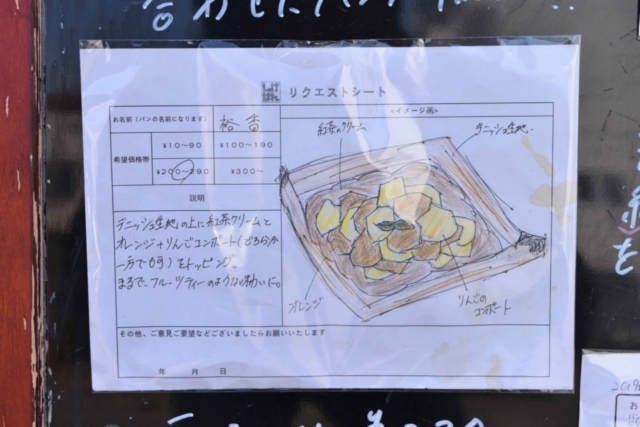 リクエストシート
お名前（パンの名前になります） 裕香
希望価格帯
¥10～90 ¥100～190
¥200～290 ¥300～
説明
デニッシュ生地の上に紅茶クリームと
オレンジ+りんごコンポート(どちらか
一方でも可)をトッピング。
まるで、フルーツティーのような味わいに。
<イメージ画>
紅茶のクリーム
デニッシュ生地.
オレンジ
りんごの
コンポート
その他、ご意見ご要望などございましたらお願いいたします
年 月 日